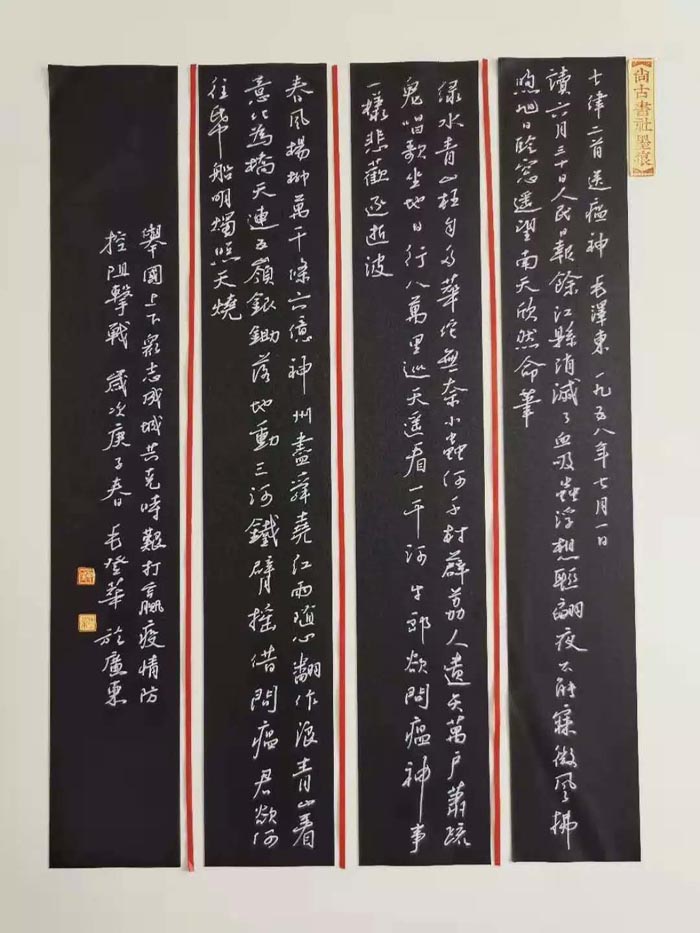 尚古書社墨痕
七律二首 送瘟神 毛澤東 一九五八年七月一日
讀六月三十日人民日報餘江縣消滅了血吸蟲浮想聯翩夜不能寐微風拂
煦旭日臨窓遥望南天欣然命筆
綠水青山枉自多華佗無奈小蟲何千村薜荔人遺矢萬戶蕭疏
鬼唱歌坐地日行八萬里巡天遥看一千河牛郎欲問瘟神事
一樣悲歡逐逝波
春風揚柳萬千條六億神州盡舜堯紅雨隨心翻作浪青山着
意化為橋天連五嶺銀鋤落地動三河鐵臂搖借問瘟君欲何
往帋船明燭照天燒
舉國上下眾志成城共克時艱打贏疫情防
控阻擊戰 歲次庚子春 毛登華 於廣東